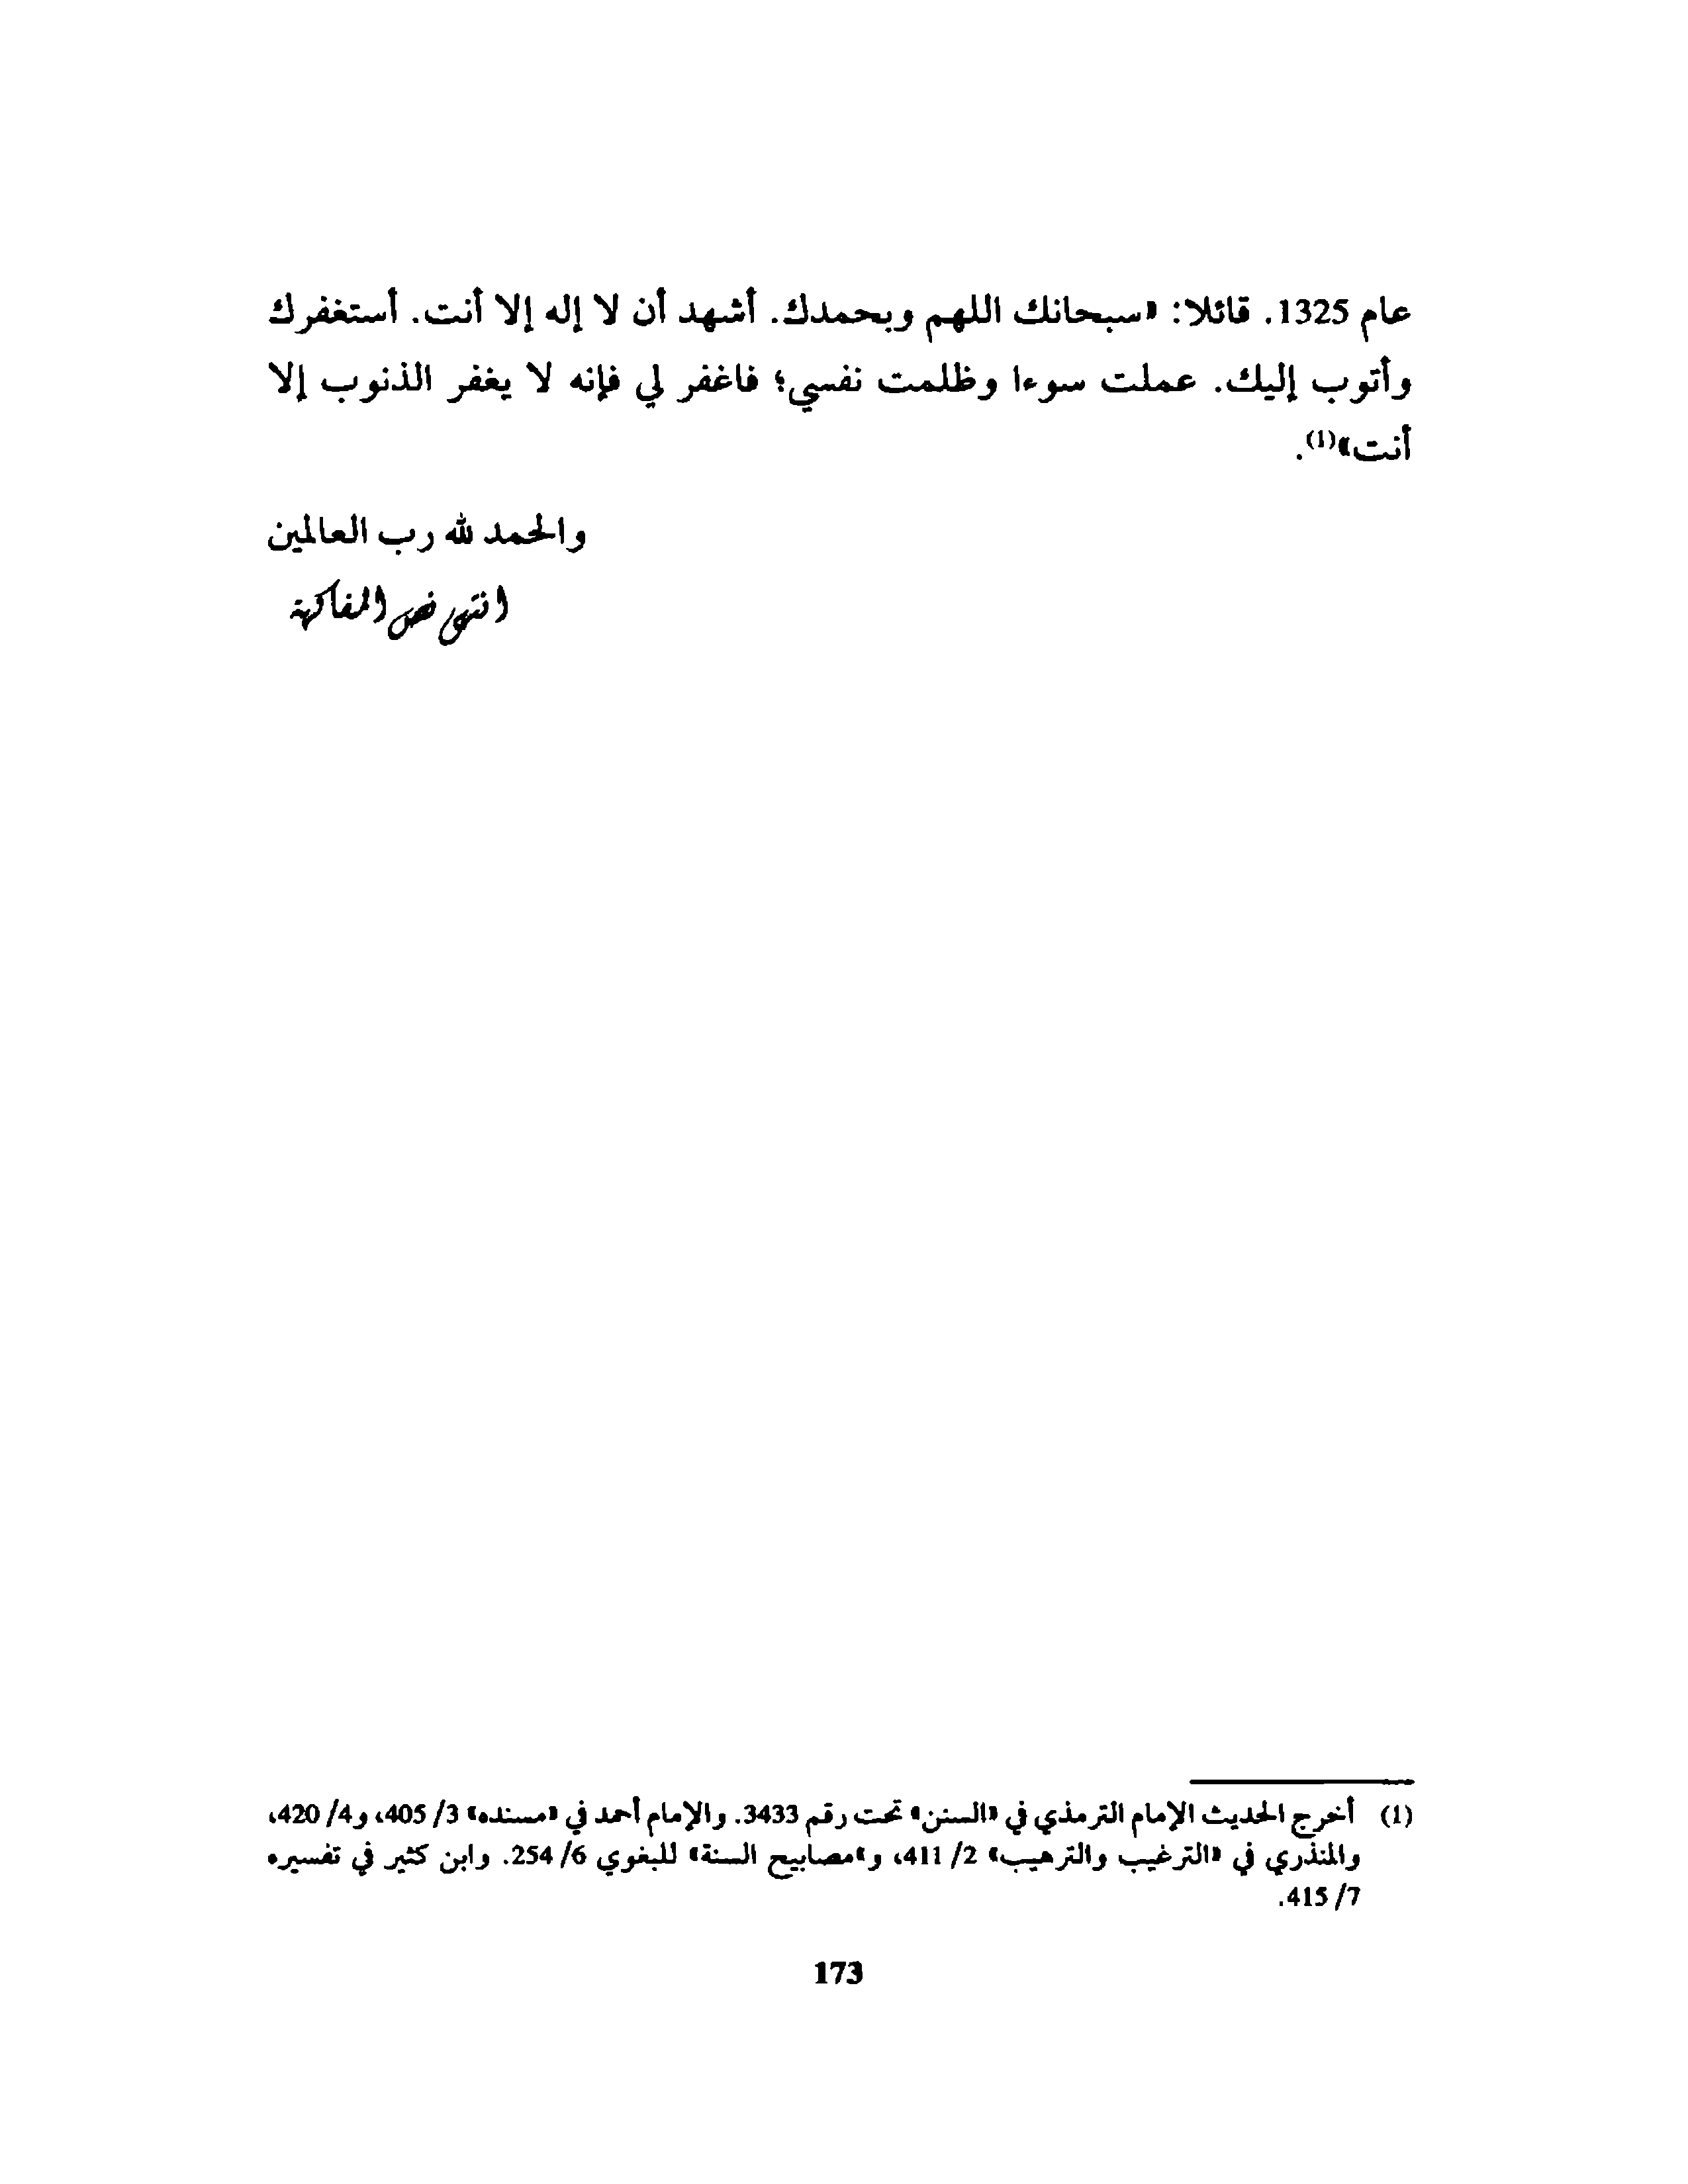 عام 1325. قائلا: «سبحانك اللهم وبحمدك. أشهد أن لا إله إلا أنت. أستغفرك
وأتوب إليك. عملت سوءا وظلمت نفسي؛ فاغفر لي فإنه لا يغفر الذنوب إلا
أنت»(1).
والحمد لله رب العالمين
انتهى نص المفاكهة
(1) أخرج الحديث الإمام الترمذي في «السنن» تحت رقم 3433. والإمام أحمد في «مسنده» 3/ 405، و4/ 420،
والمنذري في «الترغيب والترهيب» 2/ 411، و«مصابيح السنة» للبغوي 6/ 254. وابن كثير في تفسيره
7/ 415.
173